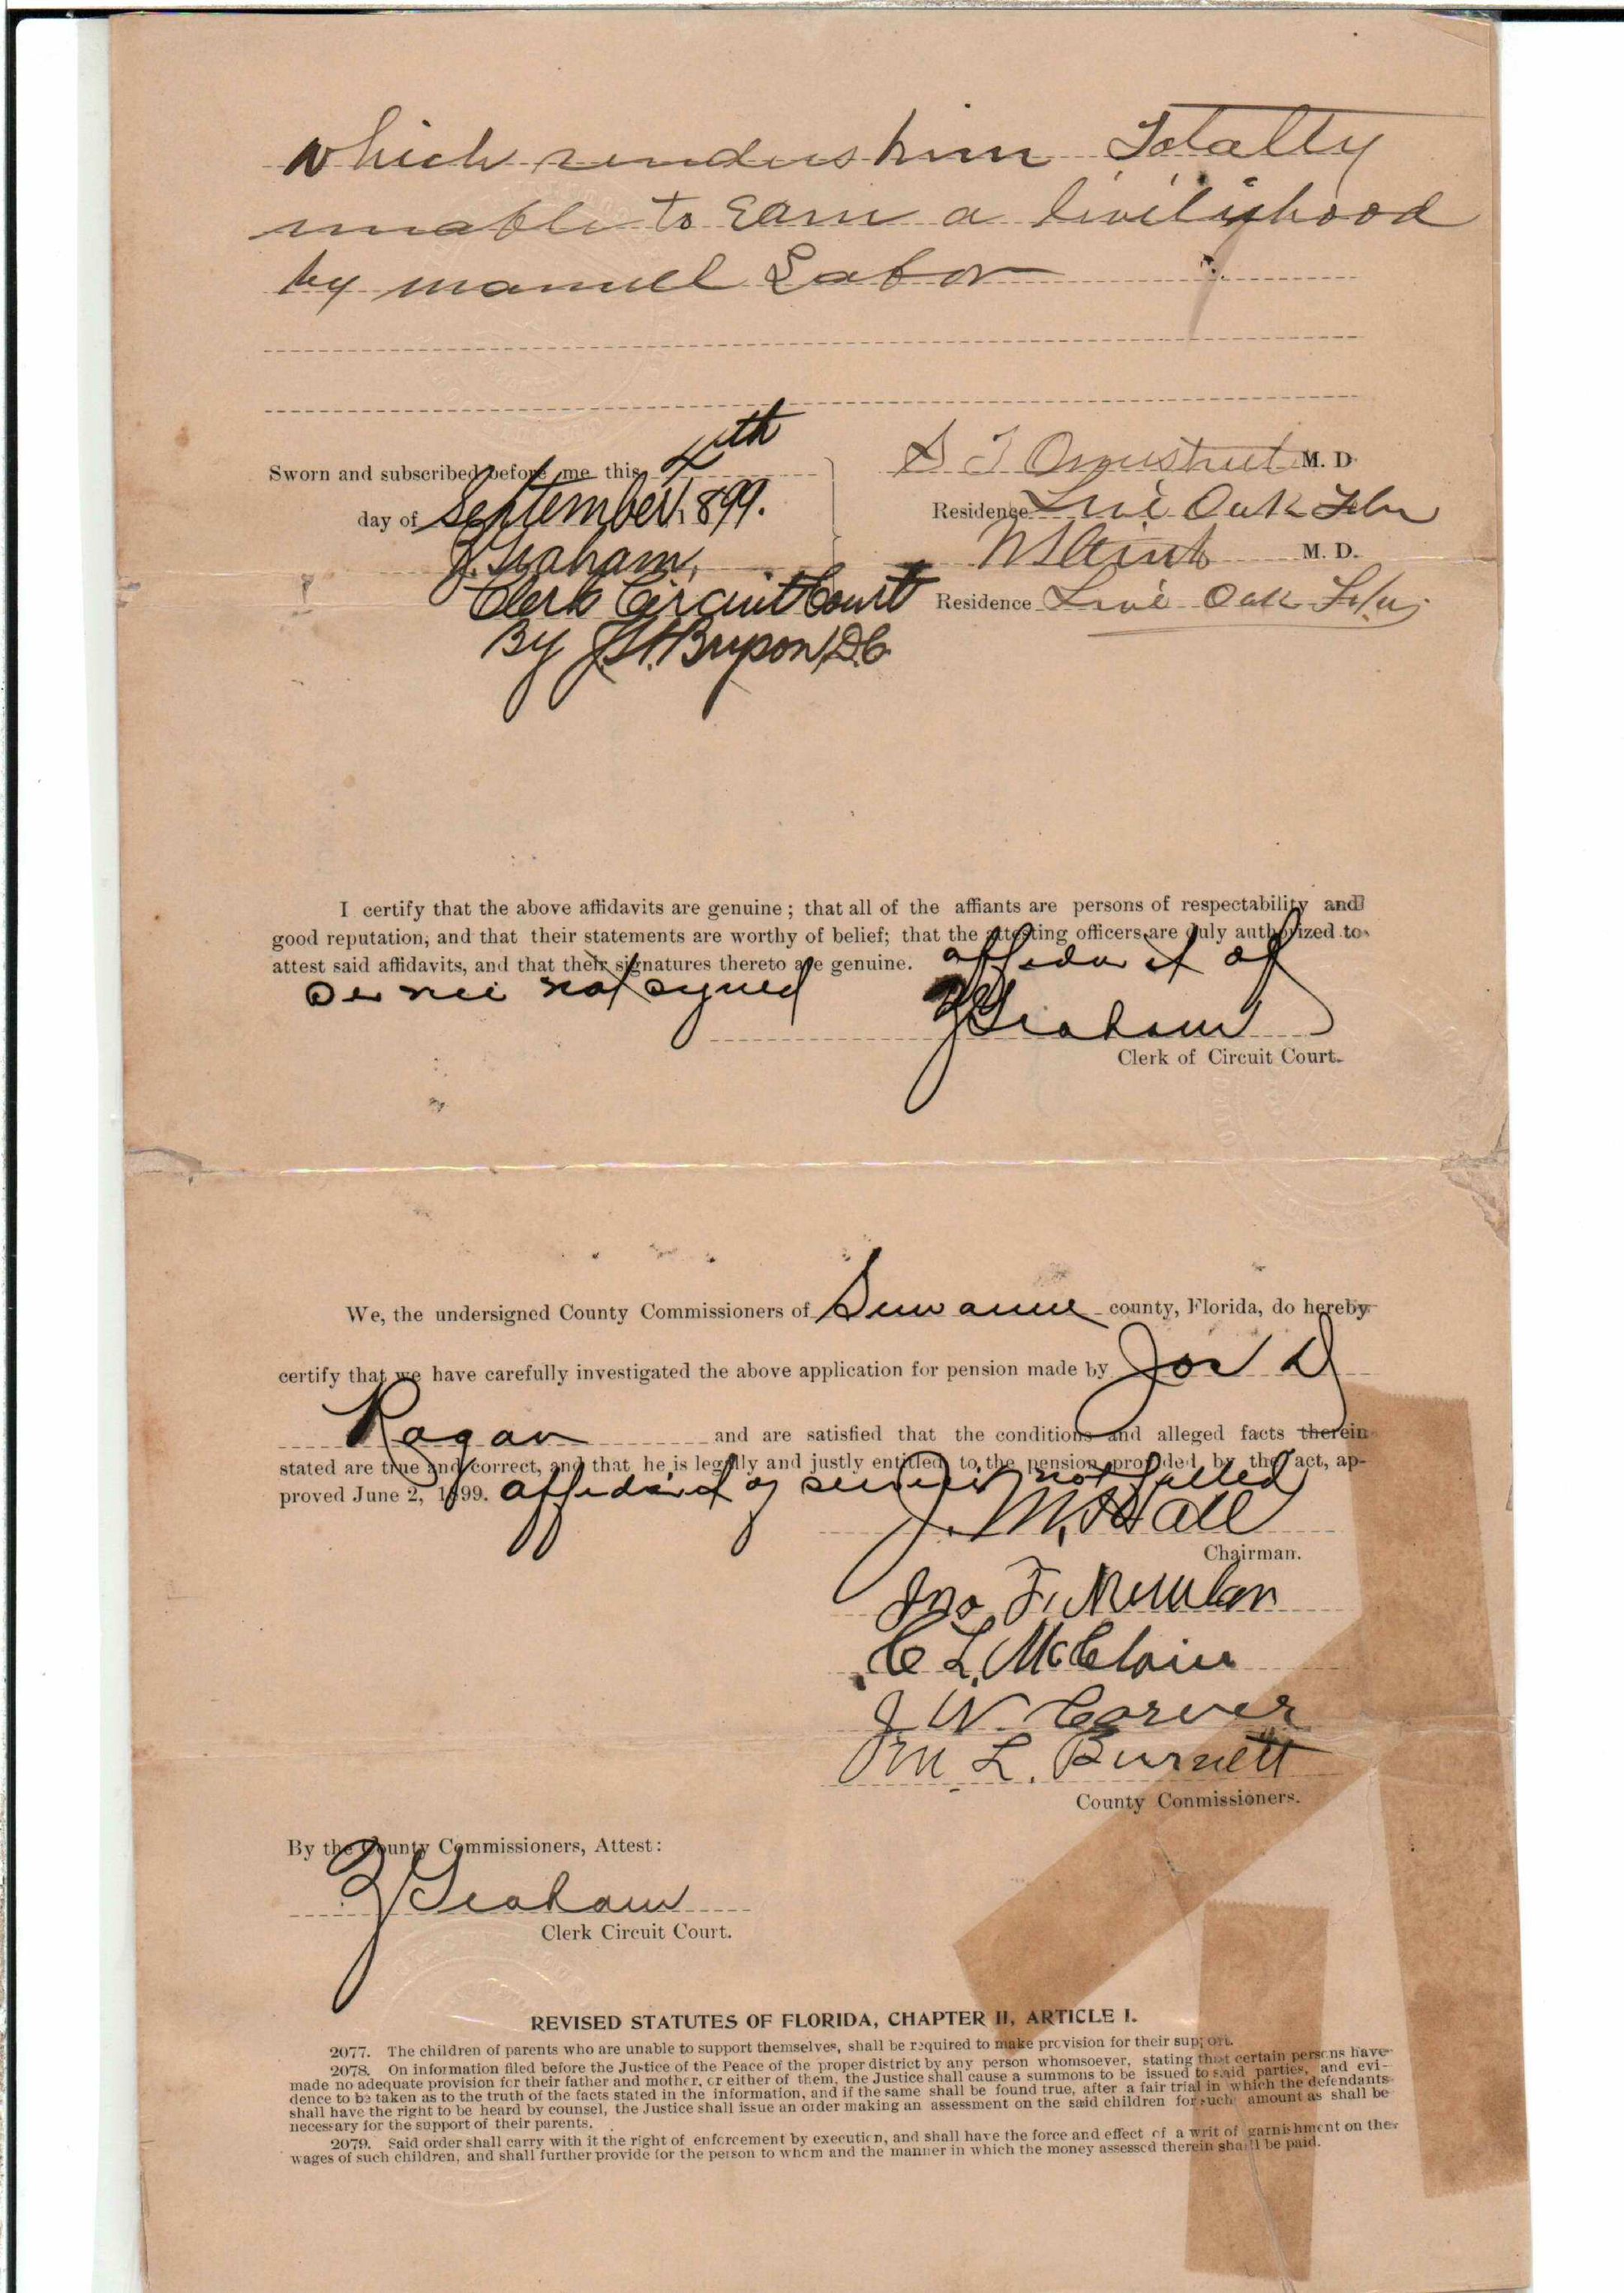 which renders him Totally
unable to Earn a livilyhood
by manuel Labor
Sworn and subscribed before me this 4th
day of September, 1899.
J. Graham,
Clerk Circuit Court
By J. H. Bryson, D.C.
S T M. D.
Residence Live Oak Fla
M. D.
Residence Live Oak Fla
I certify that the above affidavits are genuine; that all of the affiants are persons of respectability and
good reputation, and that their statements are worthy of belief; that the attesting officers are duly authorized to
attest said affidavits, and that their signatures thereto are genuine. affidavit of
not signed
J Graham
Clerk of Circuit Court.
We, the undersigned County Commissioners of Suwannee county, Florida, do hereby
certify that we have carefully investigated the above application for pension made by Jos D
Ragan and are satisfied that the conditions and alleged facts therein
stated are true and correct, and that he is legally and justly entitled to the pension provided by the act, ap-
proved June 2, 1899. affidavid of service not filled
J. M. Hall
Chairman.
Jno. F. Newlan
C L. McClain
J W Carver
M L. Burnett
County Conmissioners.
By the County Commissioners, Attest:
J Graham
Clerk Circuit Court.
REVISED STATUTES OF FLORIDA, CHAPTER II, ARTICLE I.
2077. The children of parents who are unable to support themselves, shall be required to make provision for their support.
2078. On information filed before the Justice of the Peace of the proper district by any person whomsoever, stating that certain persons have
made no adequate provision for their father and mother, or either of them, the Justice shall cause a summons to be issued to said parties, and evi-
dence to be taken as to the truth of the facts stated in the information, and if the same shall be found true, after a fair trial in which the defendants
shall have the right to be heard by counsel, the Justice shall issue an order making an assessment on the said children for such amount as shall be
necessary for the support of their parents.
2079. Said order shall carry with it the right of enforcement by execution, and shall have the force and effect of a writ of garnishment on the
wages of such children, and shall further provide for the person to whom and the manner in which the money assessed therein shall be paid.